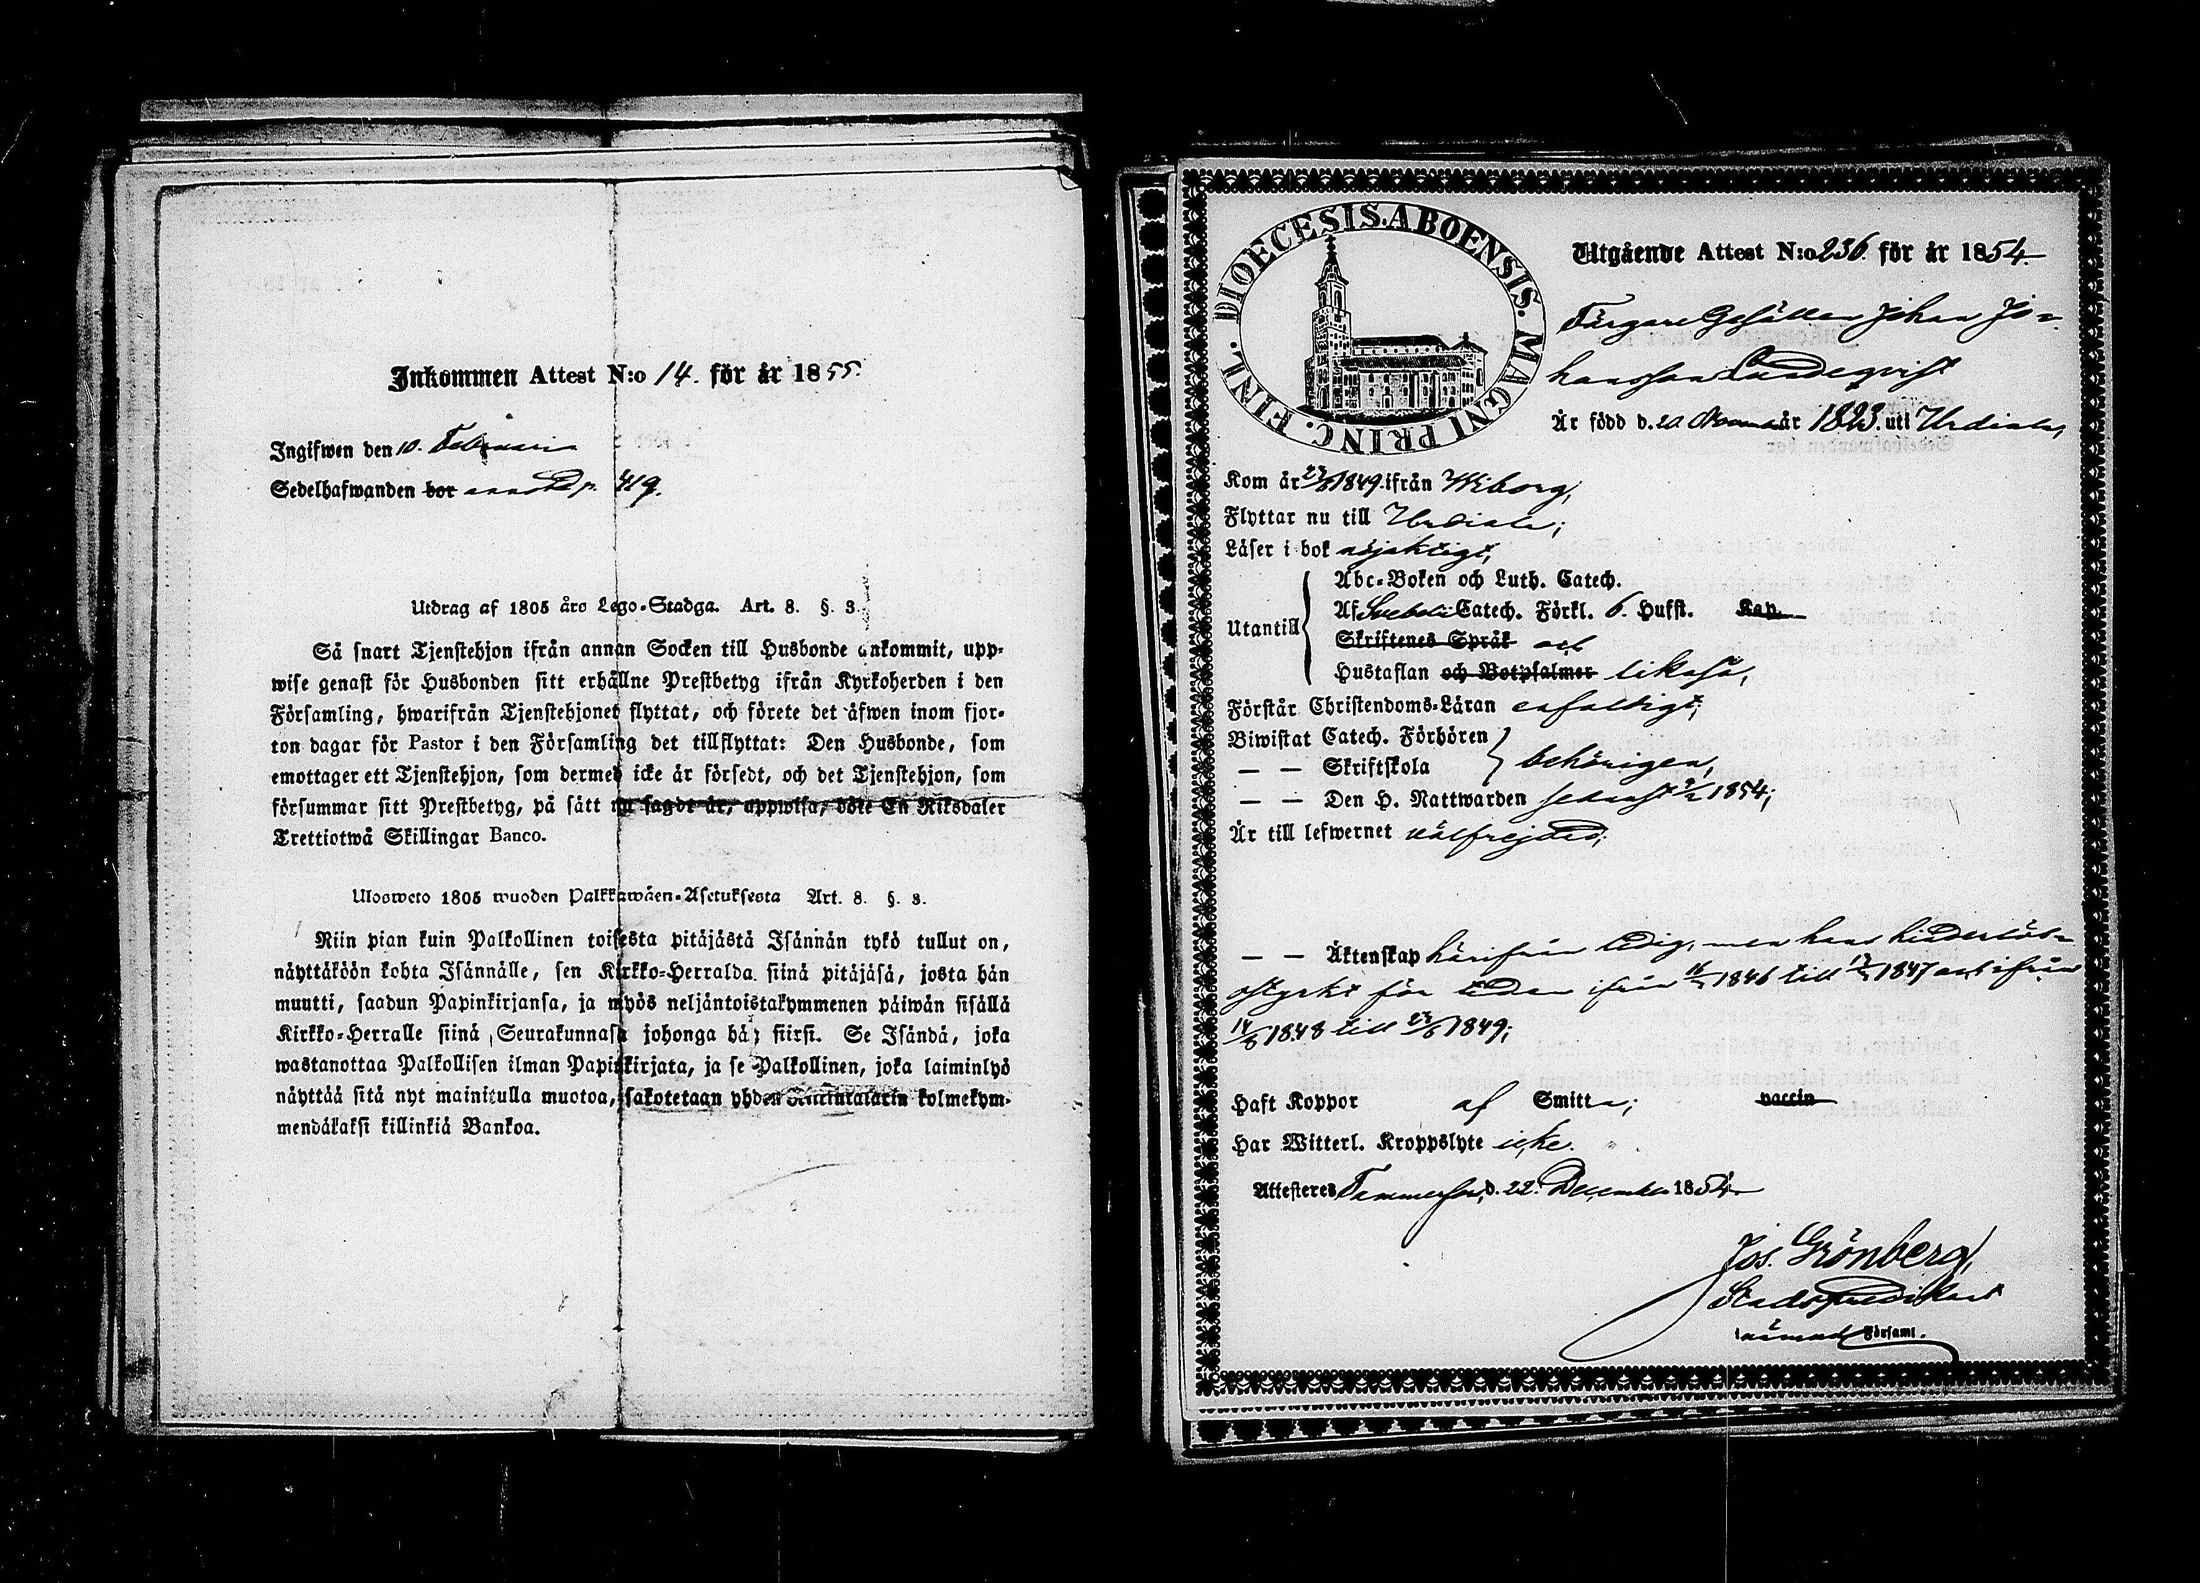 Inkommen Attest N:o 14. för år 1855.
Ingifwen den 10. Februarii
Sedelhafwanden bor p. 419.
Utdrag af 1805 års Lego-Stadga. Art. 8. §. 3.
Så snart Tjenstehjon ifrån annan Socken till Husbonde ankommit, upp-
wise genast för Husbonden sitt erhållne Prestbetyg ifrån Kyrkoherden i den
Församling, hwarifrån Tjenstehjonet flyttat, och förete det äfwen inom fjor-
ton dagar för Pastor i den Församling det tillflyttat: Den Husbonde, som
emottager ett Tjenstehjon, som dermed icke är försedt, och det Tjenstehjon, som
försummar sitt Prestbetyg, på sätt nu sagdt är, uppwisa, böte En Riksdaler
Trettiotwå Skillingar Banco.
Ulosweto 1805 wuoden Palkkawäen-Asetuksesta Art. 8. §. 3.
Niin pian kuin Palkollinen toisesta pitäjästä Isännän tykö tullut on,
näyttäköön kohta Isännälle, sen Kirkko-Herralda siinä pitäjäsä, josta hän
muutti, saadun Papinkirjansa, ja myös neljäntoistakymmenen päiwän sisällä
Kirkko-Herralle siinä Seurakunnasa johonga hän siirsi. Se Isändä, joka
wastanottaa Palkollisen ilman Papinkirjata, ja se Palkollinen, joka laiminlyö
näyttää sitä nyt mainitulla muotoa, sakotetaan yhden Riikintalarin kolmekym-
mendäkaksi killinkiä Bankoa.
DIOECESIS. ABOENSIS. MAGNI PRINC. FINL.
Utgående Attest N:o 236. för år 1854.
Färgare Gesällen Johan Jo-
hansson Lindeqvist
Är född d. 20 år 1823. uti Urdiala,
Kom år 23/6 1849. ifrån Wiborg,
Flyttar nu till Urdiala;
Läser i bok nöjaktigt,
Utantill
Abc-Boken och Luth. Catech.
Af Svebelii Catech. Förkl. 6. Hufst. Kap.
Skriftenes Språk och
Hustaflan och Botpsalmer likaså,
Förstår Christendoms-Läran enfaldigt,
Biwistat Catech. Förhören
— — Skriftskola behörigen,
— — Den H. Nattwarden sednast 9/2 1854;
Är till lefwernet välfrejdad;
— — Äktenskap härifrån ledig, men hans hinderlös-
het styrkt för tiden ifrån 1846 till 1847 och ifrån
14/6 1848 till 23/6 1849;
Haft Koppor af Smitta; vaccin
Har Witterl. Kroppslyte icke.
Attesteres Tammerfors, d. 22. December 1854.
Jos. Grönberg,
Stadspredikant
Församl.